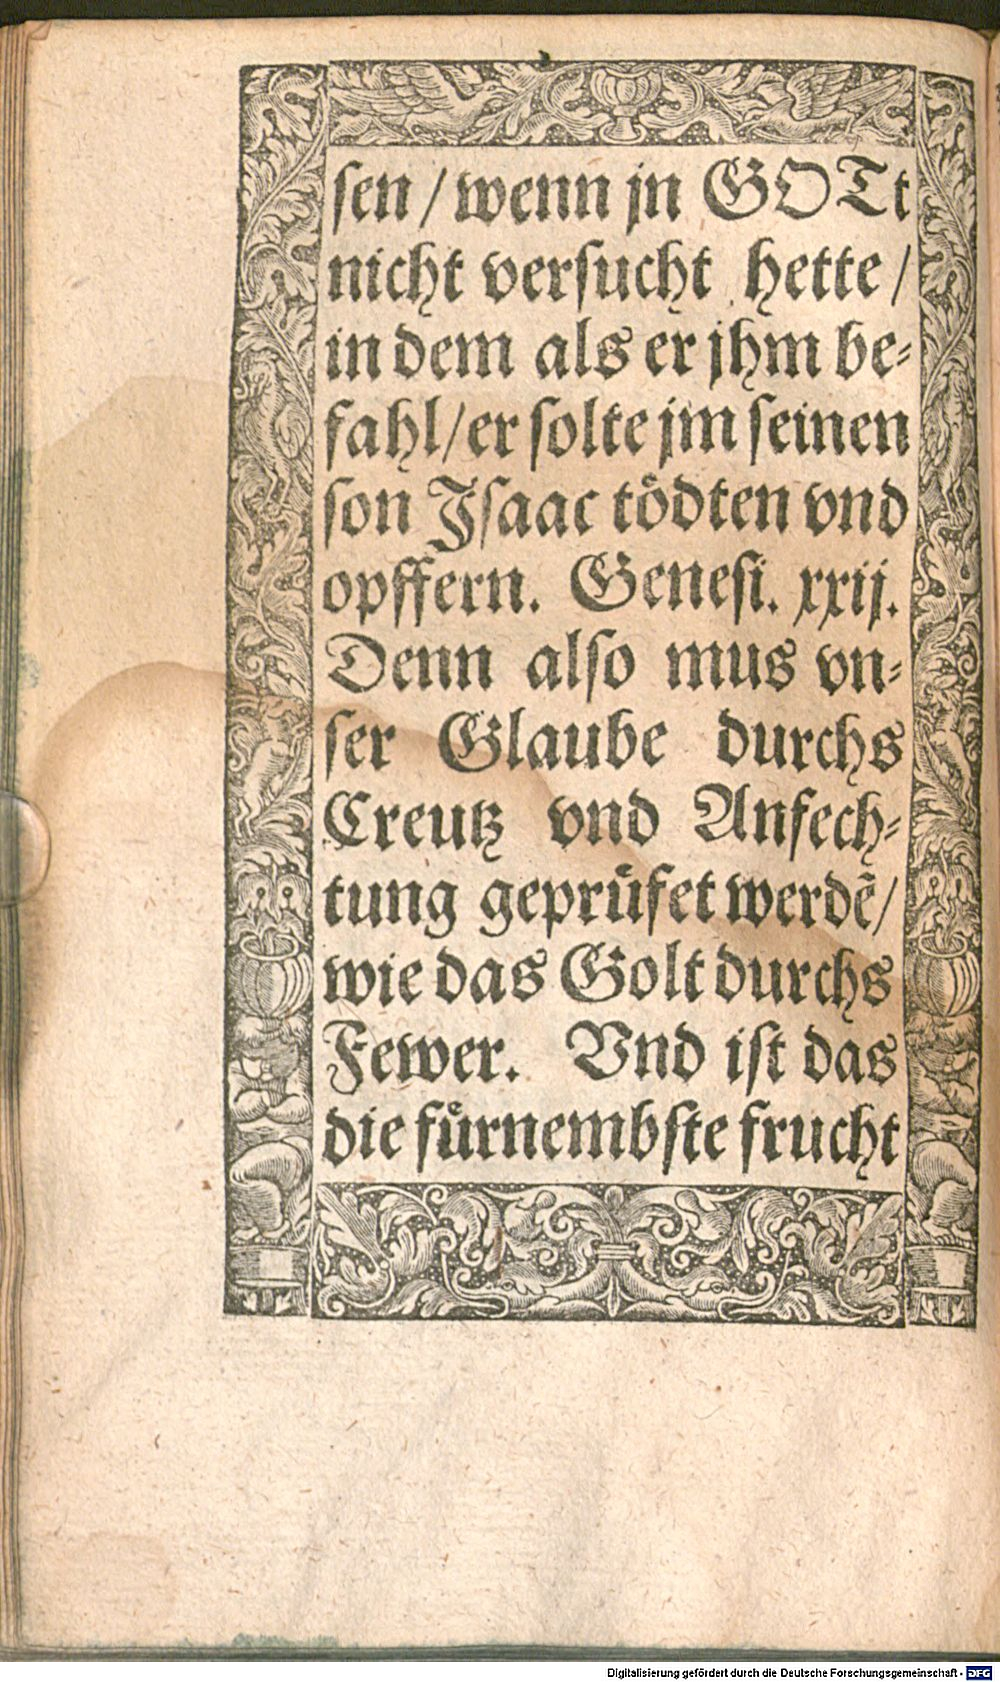 sen / wenn jn GOTt
nicht versucht hette /
in dem als er jhm be⸗
fahl / er solte jm seinen
son Jsaac tödten vnd
opffern. Genesi. xxij.
Denn also mus vn⸗
ser Glaube durchs
Creutz vnd Anfech⸗
tung geprüfet werdē /
wie das Golt durchs
Fewer. Vnd ist das
die fürnembste frucht
Digitalisierung gefördert durch die Deutsche Forschungsgemeinschaft - DFG